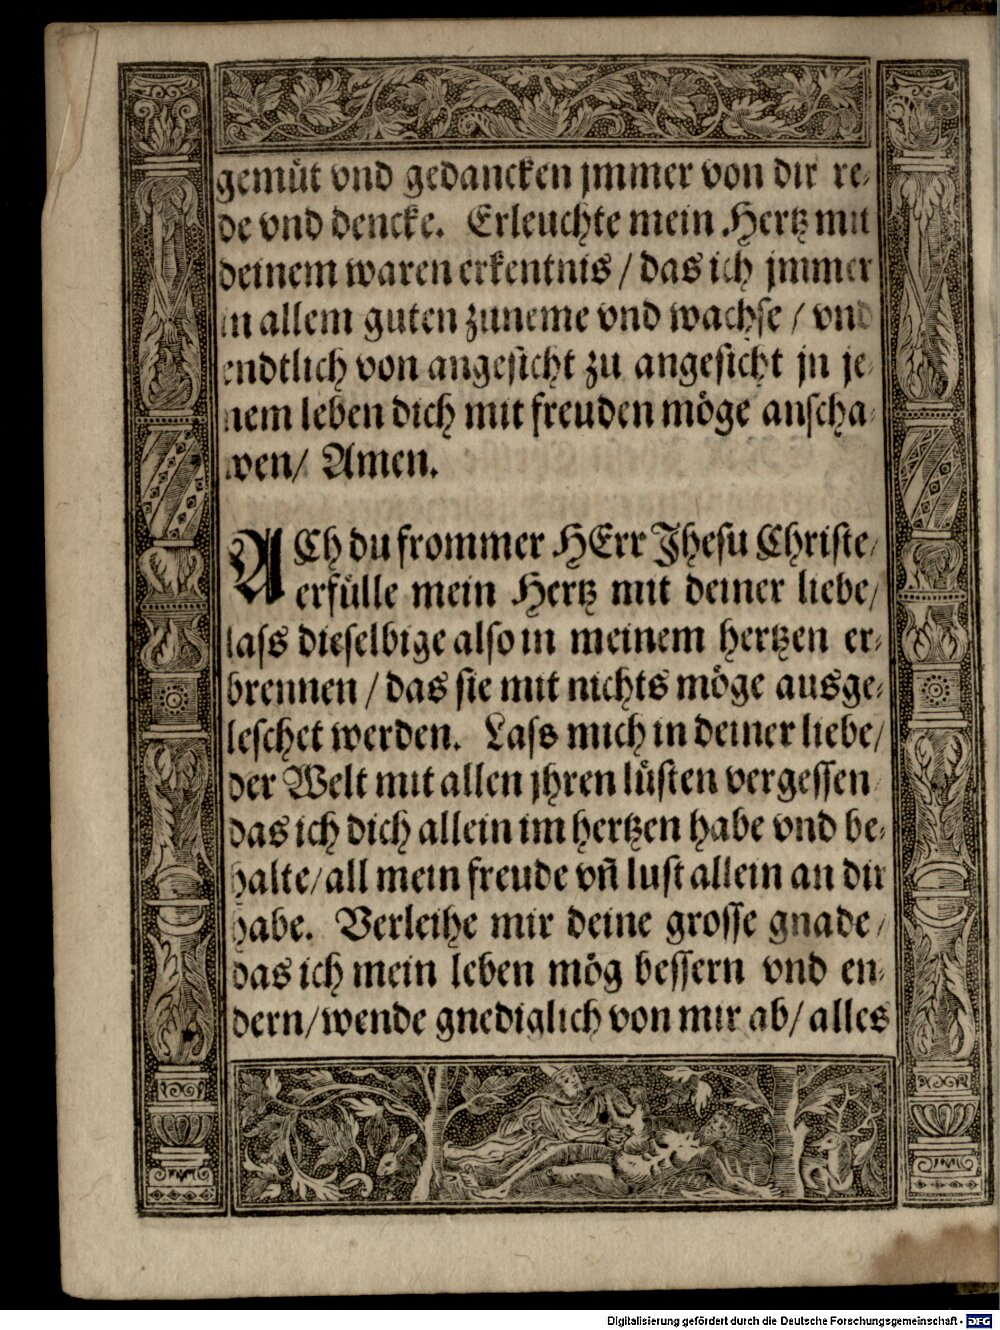 gemüt vnd gedancken jmmer von dir re-
de vnd dencke. Erleuchte mein Hertz mit
deinem waren erkentnis / das ich jmmer
in allem guten zuneme vnd wachse / vnd
endtlich von angesicht zu angesicht jn je-
nem leben dich mit freuden möge anscha-
wen/ Amen.
ACh du frommer HErr Jhesu Christe/
erfülle mein Hertz mit deiner liebe/
lass dieselbige also in meinem hertzen er-
brennen / das sie mit nichts möge ausge-
leschet werden. Lass mich in deiner liebe/
der Welt mit allen jhren lüsten vergessen
das ich dich allein im hertzen habe vnd be-
halte/ all mein freude vn̄ lust allein an dir
habe. Verleihe mir deine grosse gnade/
das ich mein leben mög bessern vnd en-
dern/ wende gnediglich von mir ab/ alles
Digitalisierung gefördert durch die Deutsche Forschungsgemeinschaft - DFG